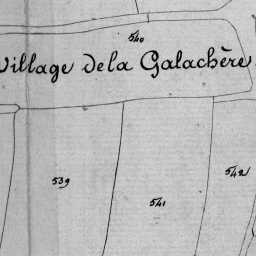 540
Village de la Galachère
539
541
542